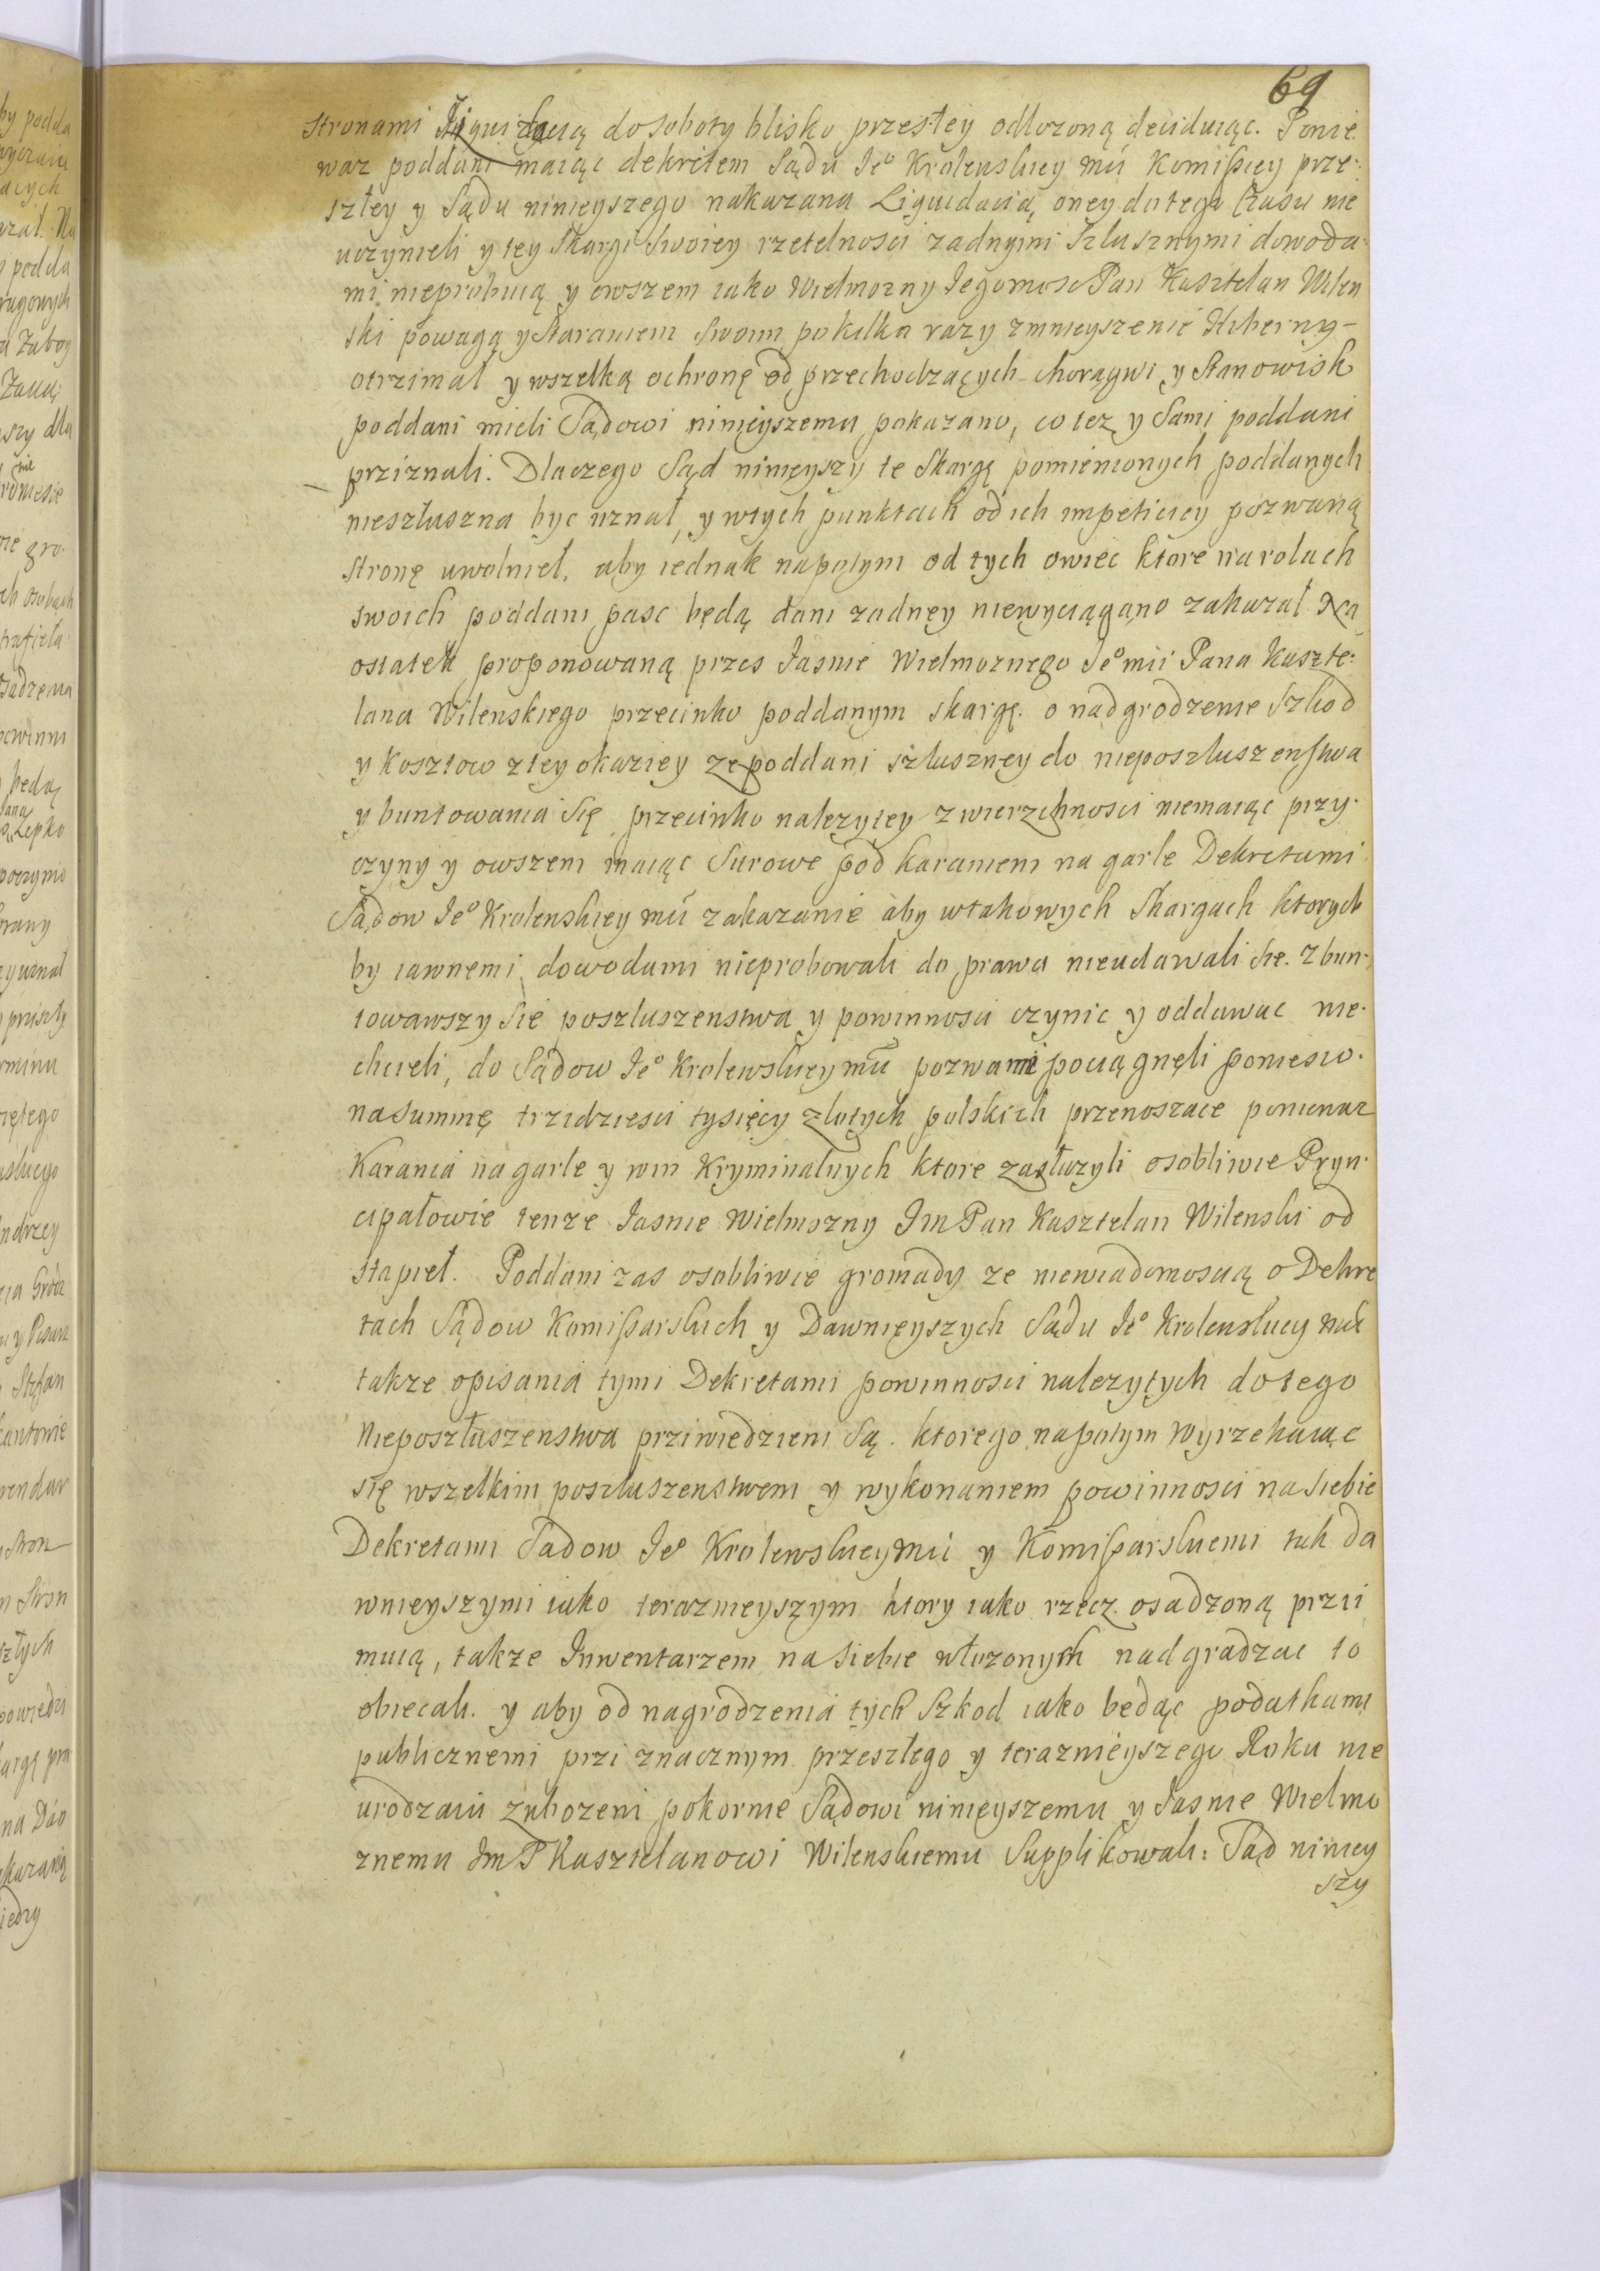 69
Stronami Liquidacią do Soboty blisko przeszłey odłozoną deciduiąc. Ponie
waz poddani maiąc dekretem Sądu Jeº Krolewskiey mći Komißiey prze:
szłey y Sądu ninieyszego nakazaną Liquidacią, oney do tego Czasu nie
uczynieli y tey Skargi Swoiey rzetelnosci zadnymi Szlusznymi dowoda
mi nieprobuią y owszem iako Wielmozny Jegomosc Pan Kasztelan Wilen
ski powagą y Staraniem Swoim po kilka razy zmnieyszenie Hiberny-
otrzimał y wszelką ochronę od przechodzących chorągwi y Stanowisk
poddani mieli Sądowi ninieyszemu pokazano, co tez y Sami poddani
priznali. Dlaczego Sąd ninieyszy te Skargę pomienionych poddanych
nieszłuszna byc uznał, y wtych punktach od ich impeticiey pozwaną
Stronę uwolnieł, aby iednak napotym od tych owiec ktore na rolach
swoich poddani pasc będą dani zadney niewyciągano zakazał Na
ostatek proponowaną przes Jasnie Wielmoznego Jeº mći Pana Kaszte:
lana Wilenskiego przeciwko poddanym skargę. o nadgrodzenie Szkod
y Kosztow ztey okaziey ze poddani szluszney do nieposzluszenstwa
y buntowania Się przeciwko nalezytey zwierzchnosci niemaiąc przy-
czyny y owszem maiąc Surowe pod karaniem na garle Dekretami
Sądow Jeº Krolewskiey mći zakazanie aby wtakowych Skargach ktorych
by iawnemi dowodami nieprobowali do prawa nieudawali Się. Zbun-
towawszy Sie poszluszenstwa y powinnosci czynic y oddawac nie-
chcieli, do Sądow Jeº Krolewskiey mći pozwami pociągnęli poniesio-
na Summę trzidziesci tysięcy złotych polskich przenoszace poniewaz
Karania na garle y win Kryminalnych ktore zasłuzyli osobliwie Pryn-
cipałowie tenze Jasnie Wielmozny Jm Pan Kasztelan Wilenski od
stapieł. Poddani zas osobliwie gromady ze niewiadomoscią o Dekre
tach Sądow Komißarskich y Dawnieyszych Sądu Jeº Krolewskiey mći
takze opisania tymi Dekretami powinnosci nalezytych do tego
Nieposzłuszenstwa priwiedzieni Są. ktorego napotym wyrzekaiąc
się wszelkim poszluszenstwem y wykonaniem powinnosci na siebie
Dekretami Sadow Jeº Krolewskiey mći y Komißarskiemi tak da
wnieyszymi iako teraznieyszym ktory iako rzecz osadzoną przii
muią, takze Inwentarzem na Siebie włozonych nadgradzac to
obiecali. y aby od nagrodzenia tych Szkod iako będąc podatkami
publicznemi przi znacznym przeszłego y teraznieyszego Roku nie
urodzaiu zubozeni pokornie Sądowi ninieyszemu y Jasnie Wielmo
znemu Jm P Kasztelanowi Wilenskiemu Supplikowali: Sąd niniey
szy